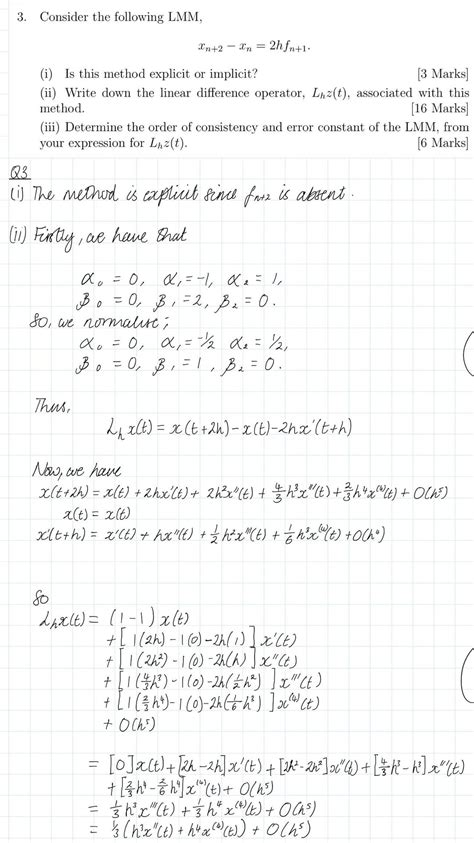 3. Consider the following LMM,
x_{n+2} − x_n = 2hf_{n+1}.
(i) Is this method explicit or implicit? [3 Marks]
(ii) Write down the linear difference operator, L_h z(t), associated with this
method. [16 Marks]
(iii) Determine the order of consistency and error constant of the LMM, from
your expression for L_h z(t). [6 Marks]
Q3
(i) The method is explicit since f_{n+2} is absent.
(ii) Firstly, we have that
α_0 = 0, α_1 = -1, α_2 = 1,
β_0 = 0, β_1 = 2, β_2 = 0.
So, we normalise;
α_0 = 0, α_1 = -1/2 α_2 = 1/2,
β_0 = 0, β_1 = 1, β_2 = 0.
Thus,
L_h x(t) = x(t+2h) - x(t) - 2hx'(t+h)
Now, we have
x(t+2h) = x(t) + 2hx'(t) + 2h²x''(t) + 4/3 h³x'''(t) + 2/3 h⁴x⁽⁴⁾(t) + O(h⁵)
x(t) = x(t)
x'(t+h) = x'(t) + hx''(t) + 1/2 h²x'''(t) + 1/6 h³x⁽⁴⁾(t) + O(h⁴)
So
L_h x(t) = (1-1) x(t)
+ [1(2h) - 1(0) - 2h(1)] x'(t)
+ [1(2h²) - 1(0) - 2h(h)] x''(t)
+ [1(4/3 h³) - 1(0) - 2h(1/2 h²)] x'''(t)
+ [1(2/3 h⁴) - 1(0) - 2h(1/6 h³)] x⁽⁴⁾(t)
+ O(h⁵)
= [0]x(t) + [2h-2h]x'(t) + [2h²-2h²]x''(t) + [4/3 h³ - h³]x'''(t)
+ [2/3 h⁴ - 2/6 h⁴]x⁽⁴⁾(t) + O(h⁵)
= 1/3 h³x'''(t) + 1/3 h⁴x⁽⁴⁾(t) + O(h⁵)
= 1/3 (h³x'''(t) + h⁴x⁽⁴⁾(t)) + O(h⁵)